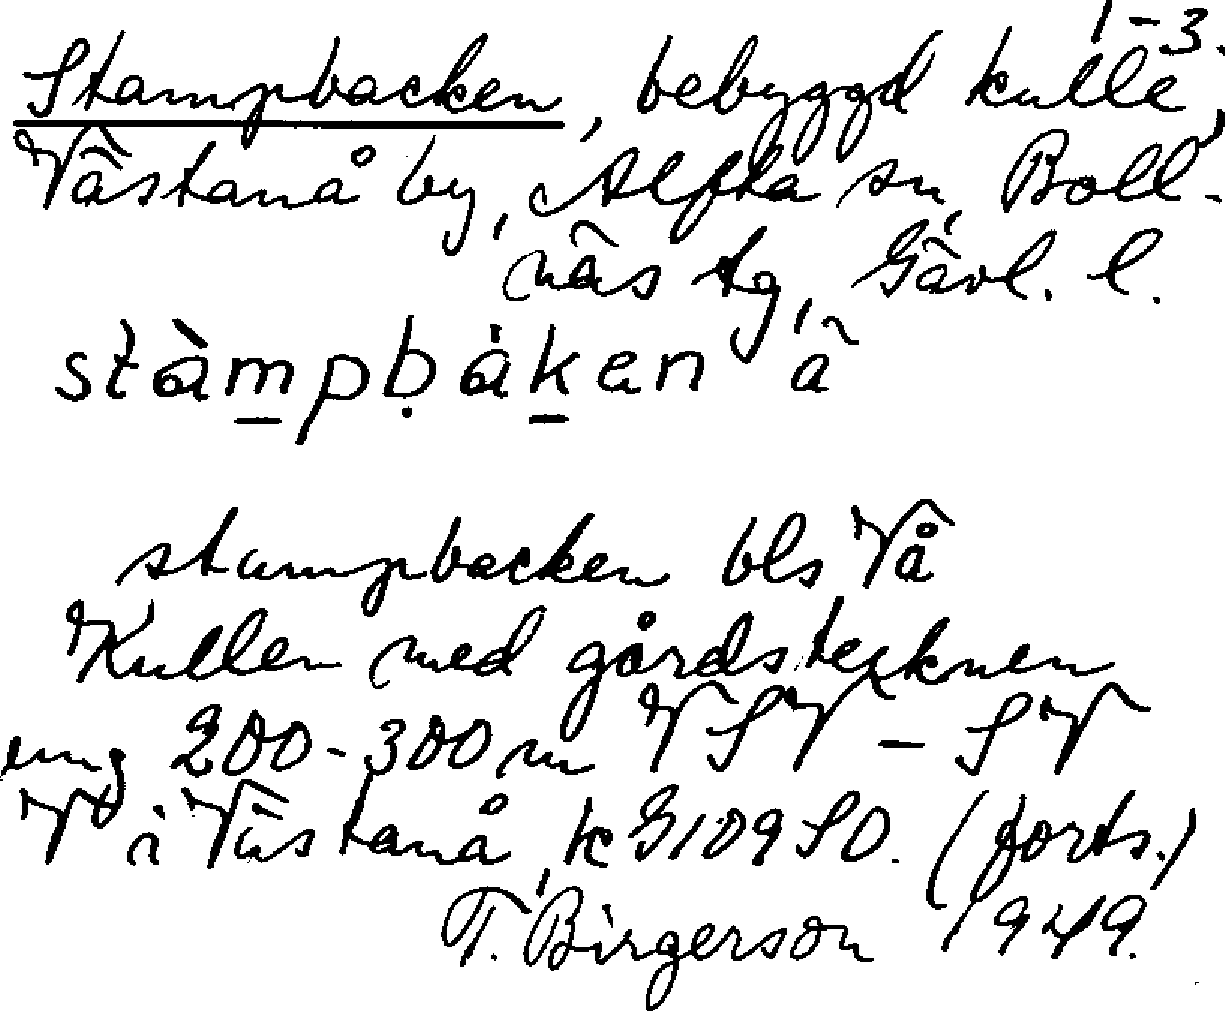 1-3.
Stampbacken, bebyggd kulle,
Västanå by, Alfta sn, Boll-
näs tg, Gävl. l.
stàmpḅåken ã
stampbacken bls, Vå
Kullen med gårdstecknen
omg 200-300 m VSV - SV
V i Västanå, k G109SO. (forts.)
T. Birgerson 1949.